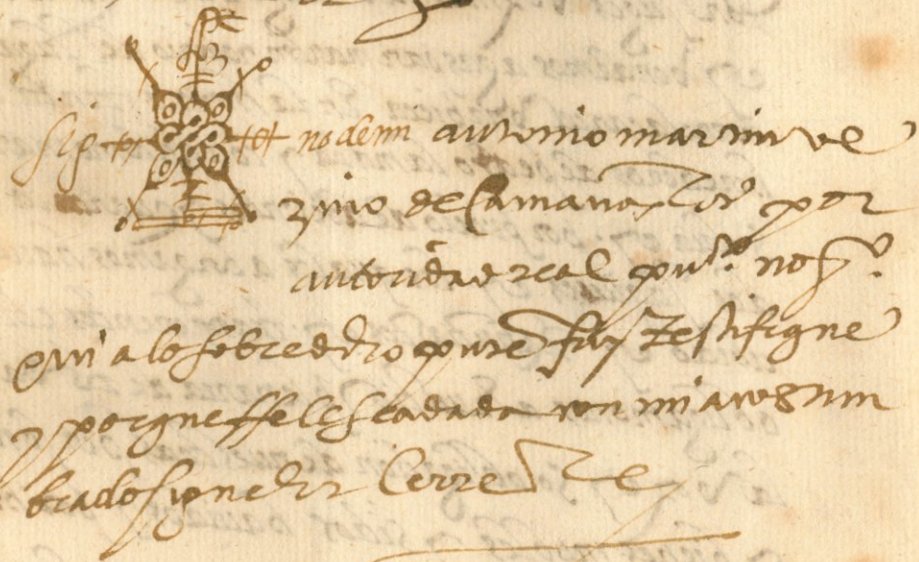 Sig no de mi antonio martin ve
zino de Camana por
autoridad real pu.co no.rio
qui a lo sobre dicho presente fuy testifique
y porque ffe les sea dada con mi acostum
brado signo lo cerre